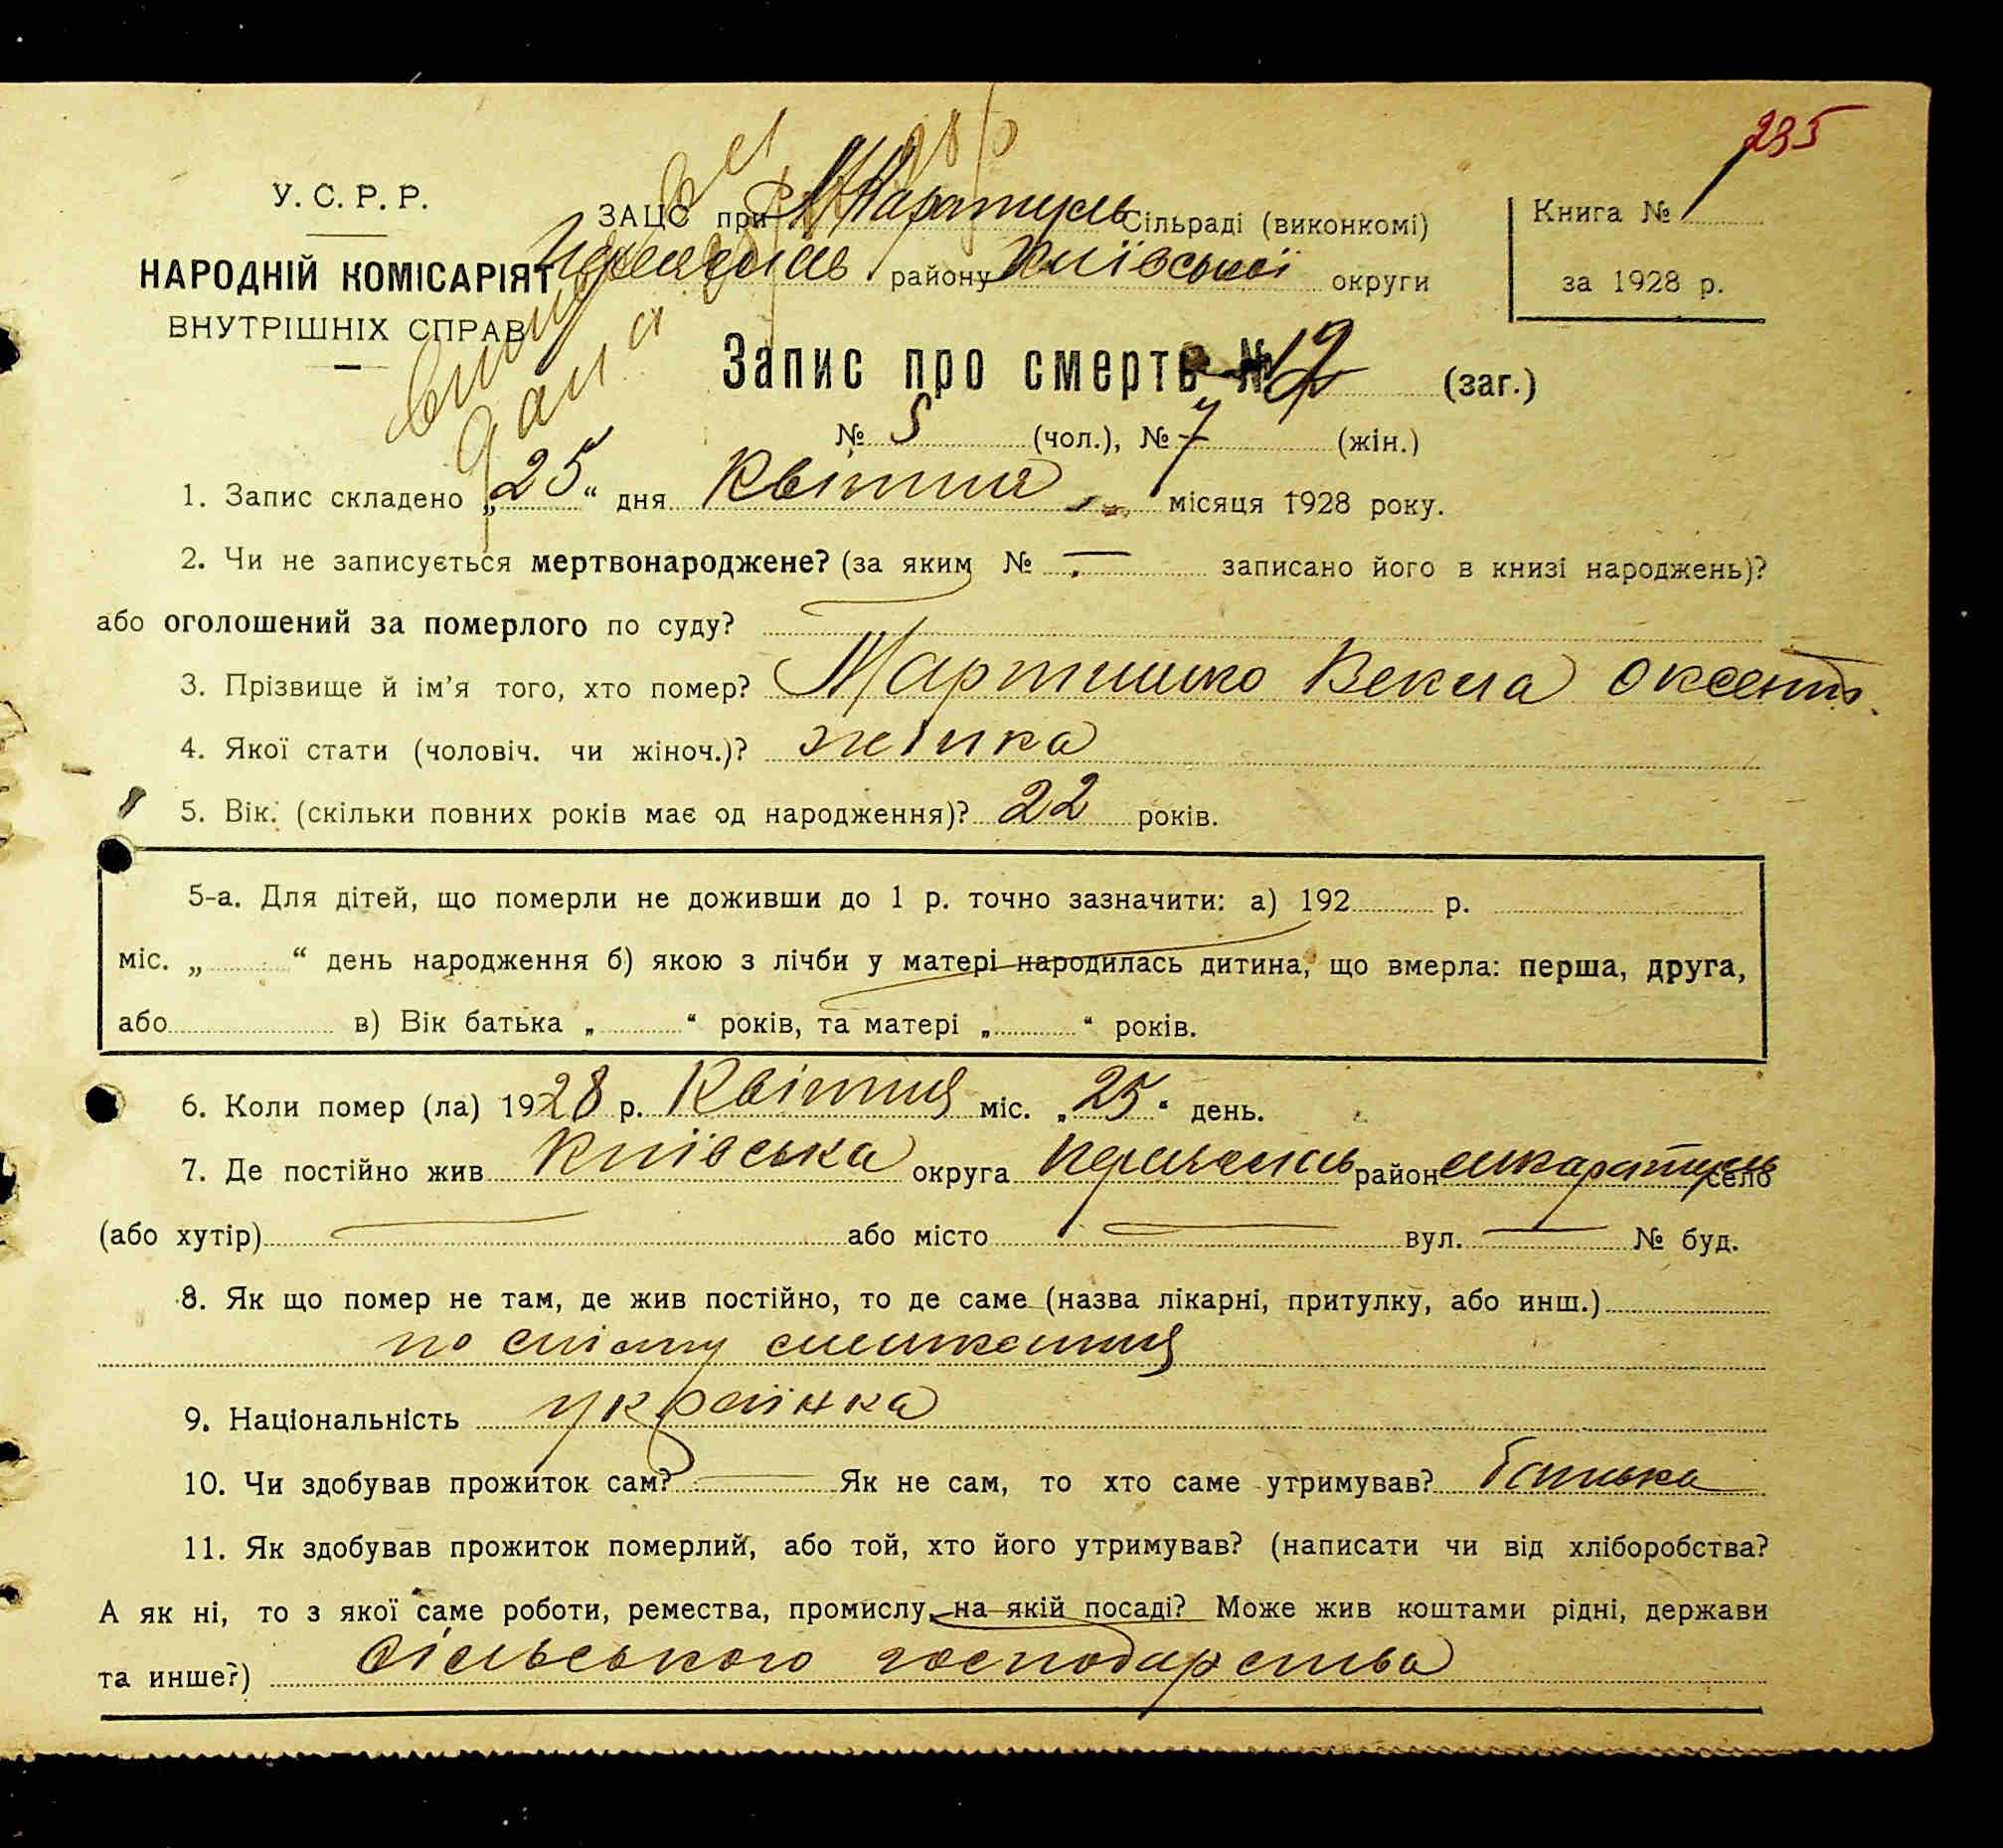 235
У. С. Р. Р.
НАРОДНІЙ КОМІСАРІЯТ
ВНУТРІШНІХ СПРАВ
ЗАЦС при М Каратуль Сільраді (виконкомі)
району Київської округи
Книга № 1
за 1928 р.
Запис про смерть № 12 (заг.)
№ 5 (чол.), № 7 (жін.)
1. Запис складено „25“ дня Квітня місяця 1928 року.
2. Чи не записується мертвонароджене? (за яким № — записано його в книзі народжень)?
або оголошений за померлого по суду?
3. Прізвище й ім’я того, хто помер? Мартишко Векла Оксент.
4. Якої стати (чоловіч. чи жіноч.)? жінка
5. Вік. (скільки повних років має од народження)? 22 років.
5-а. Для дітей, що померли не доживши до 1 р. точно зазначити: а) 192 р.
міс. „ “ день народження б) якою з лічби у матері народилась дитина, що вмерла: перша, друга,
або в) Вік батька „ “ років, та матері „ “ років.
6. Коли помер (ла) 1928 р. Квітня міс. „25“ день.
7. Де постійно жив Київська округа район мкаратуль село
(або хутір) — або місто — вул. — № буд.
8. Як що помер не там, де жив постійно, то де саме (назва лікарні, притулку, або инш.)
по
9. Національність українка
10. Чи здобував прожиток сам? — Як не сам, то хто саме утримував? батька
11. Як здобував прожиток померлий, або той, хто його утримував? (написати чи від хліборобства?
А як ні, то з якої саме роботи, ремества, промислу, на якій посаді? Може жив коштами рідні, держави
та инше?) сільського господарства